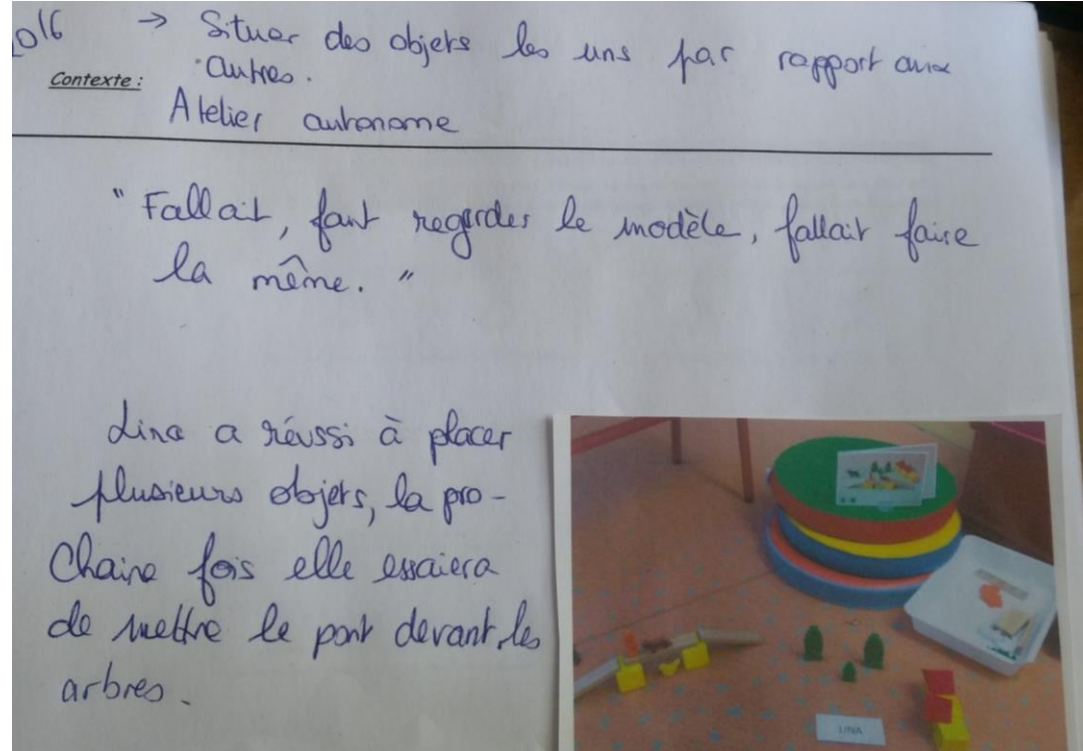 2016 → Situer des objets les uns par rapport aux
autres.
Contexte :
Atelier autonome
"Fallait, faut regarder le modèle, fallait faire
la même."
Lina a réussi à placer
plusieurs objets, la pro-
chaine fois elle essaiera
de mettre le pont devant les
arbres.
LINA